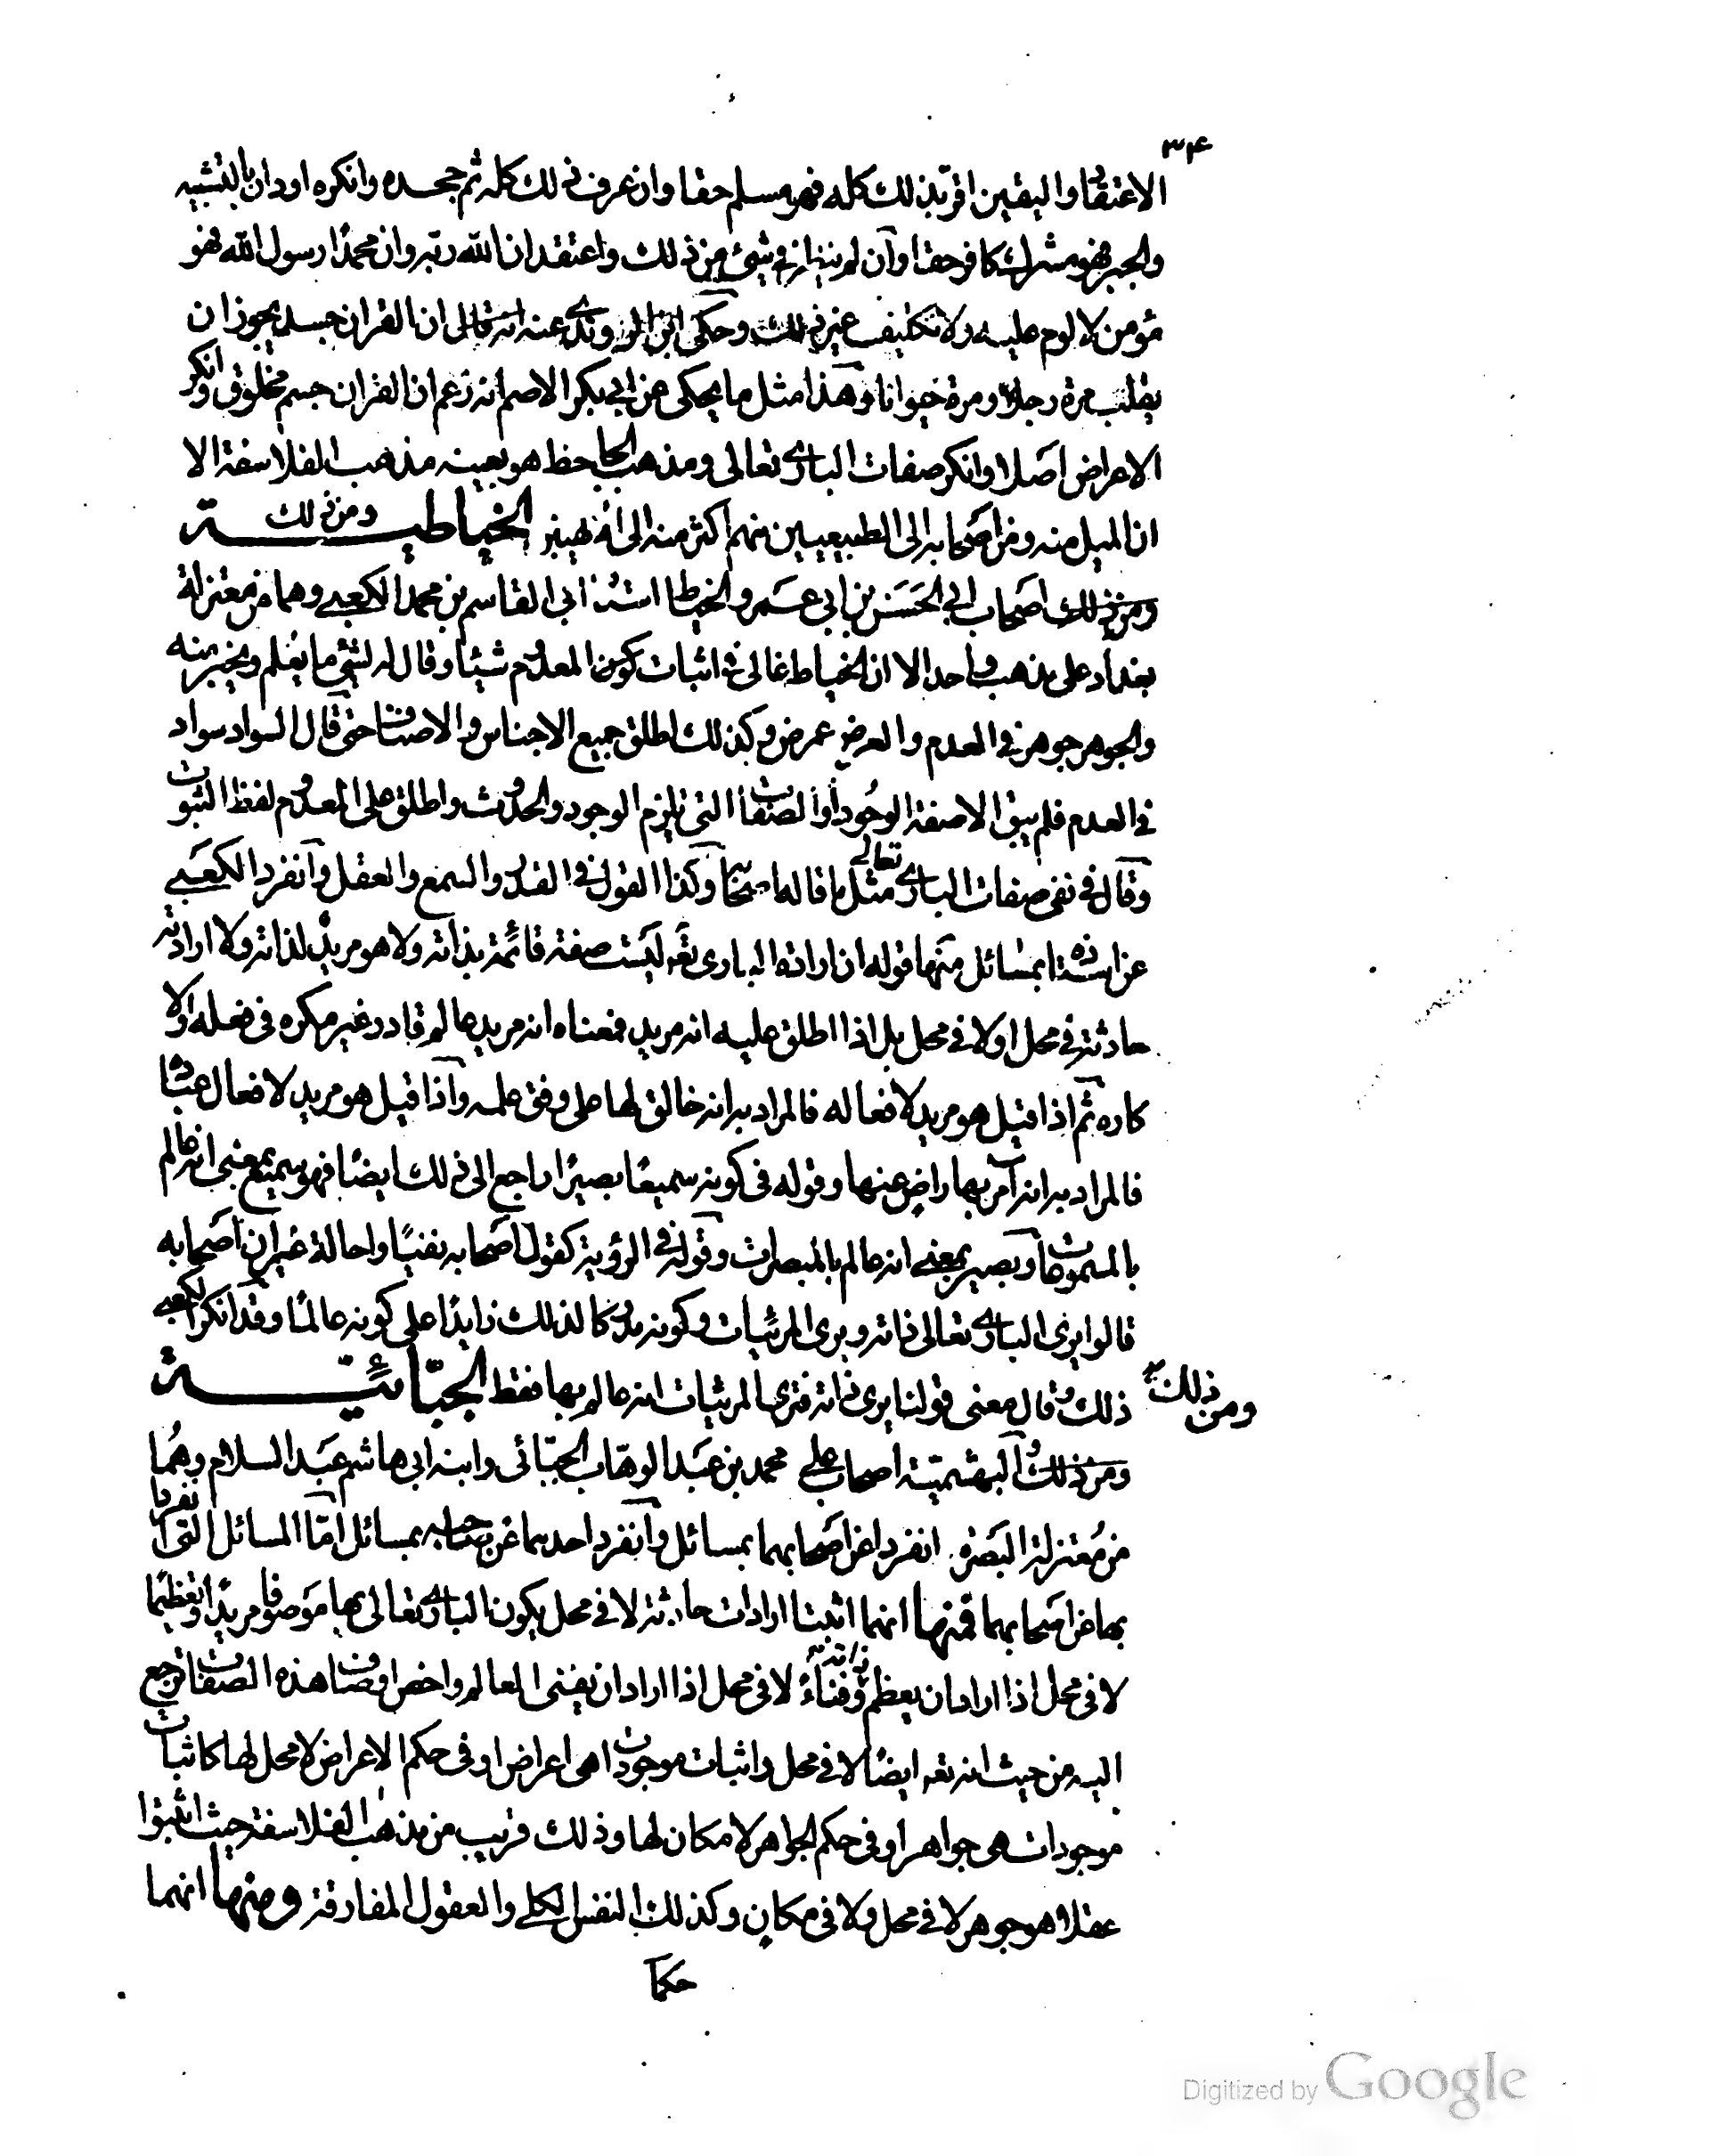 ٣٤
الاعتقاد واليقين اقر بذلك كله فهو مسلم حقا وان عرف ذلك كله ثم جحده وانكره او دان بالتشبيه
والجبر فهو مشرك كافر حقا وان لم ينظر في شئ من ذلك واعتقد ان الله ربه وان محمدا رسول الله فهو
مؤمن لا لوم عليه ولا تكليف غير ذلك وحكى ابن الروندي عنه انه قال ان القران جسد يجوز ان
يقلب مرة رجلا ومرة حيوانا وهذا مثل ما يحكى عن ابي بكر الاصم انه زعم ان القران جسم مخلوق وانكر
الاعراض اصلا وانكر صفات الباري تعالى ومذهب الجاحظ هو بعينه مذهب الفلاسفة الا
ان الميل منه ومن اصحابه الى الطبيعيين منهم اكثر منه الى الالهيين الخياطيـة ومن ذلك
ومن ذلك اصحاب ابي الحسن بن ابي عمرو الخياط استاذ ابي القاسم بن محمد الكعبي وهما من معتزلة
بغداد على مذهب واحد الا ان الخياط غالى في اثبات كون المعدوم شيئا وقال الشئ ما يعلم ويخبر عنه
والجوهر جوهر في العدم والعرض عرض وكذلك اطلق جميع الاجناس والاصناف حتى قال السواد سواد
في العدم فلم يبق الا صفة الوجود او الصفات التي تلزم الوجود والحدوث واطلق على المعدوم لفظ الثبوت
وقال في نفي صفات الباري تعالى مثل ما قاله اصحابه وكذا القول في القدر والسمع والعقل وانفرد الكعبي
عن استاذه بمسائل منها قوله ان ارادة الباري تعـ ليست صفة قائمة بذاته ولا هو مريد لذاته ولا ارادته
حادثة في محل او لا في محل بل اذا اطلق عليه انه مريد فمعناه انه عالم قادر غير مكره في فعله ولا
كاره ثم اذا قيل هو مريد لافعاله فالمراد به انه خالق لها على وفق علمه واذا قيل هو مريد لافعال عباده
فالمراد به انه آمر بها راض عنها وقوله في كونه سميعا بصيرا راجع الى ذلك ايضا فهو سميع بمعنى انه عالم
بالمسموعات وبصير بمعنى انه عالم بالمبصرات وقوله في الرؤية كقول اصحابه نفيا واحالة غير ان اصحابه
قالوا يرى الباري تعالى ذاته ويرى المرئيات وكونه مدركا لذلك زايدا على كونه عالما وقد انكر الكعبي
ذلك وقال معنى قولنا يرى ذاته ويرى المرئيات انه عالم بها فقط الجبّائيـة ومن ذلك
ومن ذلك البهشمية اصحاب علي محمد بن عبد الوهاب الجبّائي وابنه ابي هاشم عبد السلام وهما
من معتزلة البصرة انفردا عن اصحابهما بمسائل وانفرد احدهما عن صاحبه بمسائل امّا المسائل التي انفردا
بها عن اصحابهما فمنها انهما اثبتا ارادات حادثة لا في محل يكون الباري تعالى بها موصوفا مريدا وتعظيما
لا في محل اذا اراد ان يعظم ذاته وفناءً لا في محل اذا اراد ان يفنى العالم واخص اوصاف هذه الصفات ترجع
اليه من حيث انه تعـ ايضا لا في محل واثبات موجودات هي اعراض او في حكم الاعراض لا محل لها كاثبات
موجودات هي جواهر او في حكم الجواهر لا مكان لها وذلك قريب من مذهب الفلاسفة حيث اثبتوا
عقلا هو جوهر لا في محل ولا في مكان وكذلك النفس الكلي والعقول المفارقة ومنها انهما
حكما
Digitized by Google